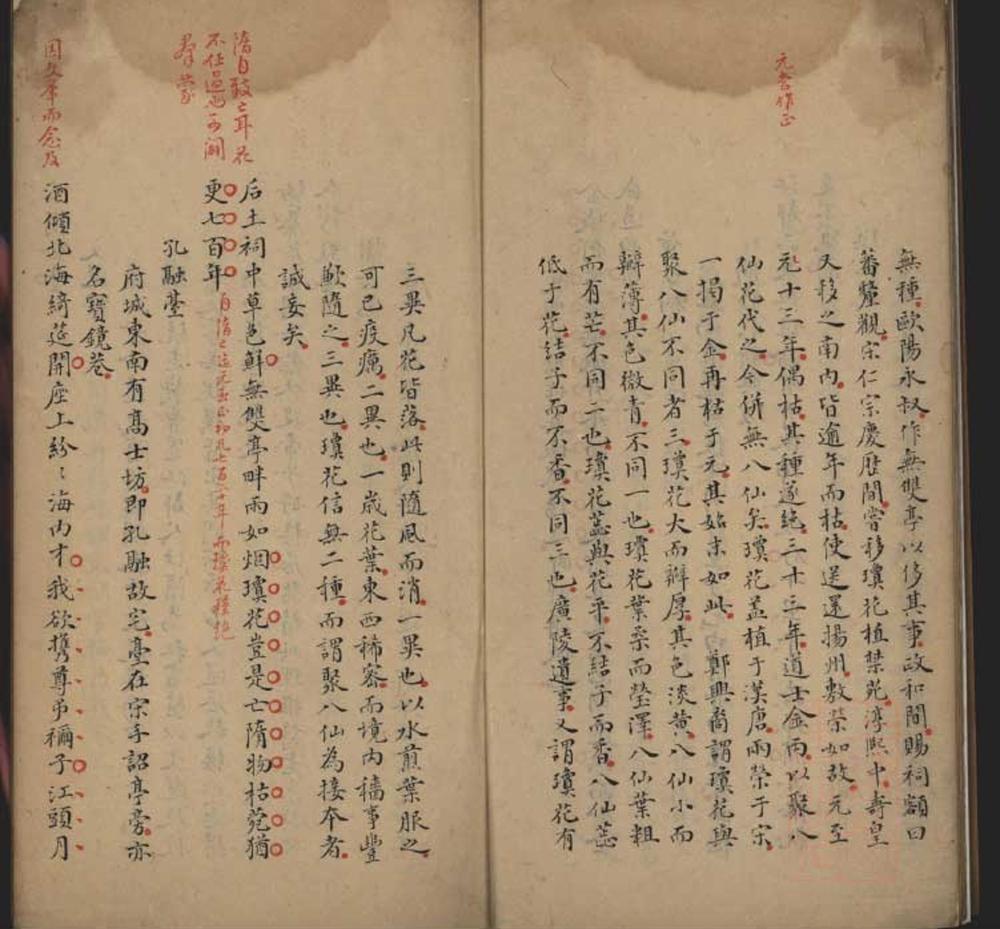 元當作正
無種歐陽永叔作無雙亭以侈其事政和間賜祠額曰
蕃釐觀宋仁宗慶曆間嘗移瓊花植禁苑淳熙中壽皇
又移之南內皆逾年而枯使送還揚州敷榮如故元至
元十三年偶枯其種遂絕三十三年道士金丙以聚八
仙花代之今併無八仙矣瓊花葢植于漢唐雨榮于宋
一揭于金再枯于元其始末如此 鄭興裔謂瓊花與
聚八仙不同者三瓊花大而瓣厚其色淡黃八仙小而
瓣薄其色微青不同一也瓊花葉柔而瑩澤八仙葉粗
而有芒不同二也瓊花蕊與花平不結子而香八仙蕊
低于花結子而不香不同三也廣陵遺事又謂瓊花有
三異凡花皆落此則隨風而消一異也以水煎葉服之
可已疫癘二異也一歲花葉東西稀密而境內穡事豐
歉隨之三異也瓊花信無二種而謂聚八仙為接本者
誠妄矣
隋自敗亡耳花
不任過也可謂
群蒙
后土祠中草色鮮無雙亭畔雨如烟瓊花豈是亡隋物枯菀猶
更七百年自隋亡迄元至正初凡七百二十年而瓊花種絕
孔融臺
府城東南有高士坊即孔融故宅臺在宗手詔亭旁亦
名寶鏡巷
因文舉而念及
酒傾北海綺筵開座上紛〻海內才我欲攜尊弔禰子江頭月